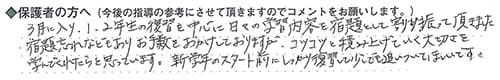 ◆保護者の方へ(今後の指導の参考にさせて頂きますのでコメントをお願いします。)
3月に入り、1、2年生の復習を中心に日々の学習内容を宿題として割り振って頂きました
宿題忘れなどもありお手数をおかけしておりますが、コツコツと積み上げていく大切さを
学んでくれたらと思っています。新学年のスタート前にしっかり復習して少しでも追いついてほしいです。